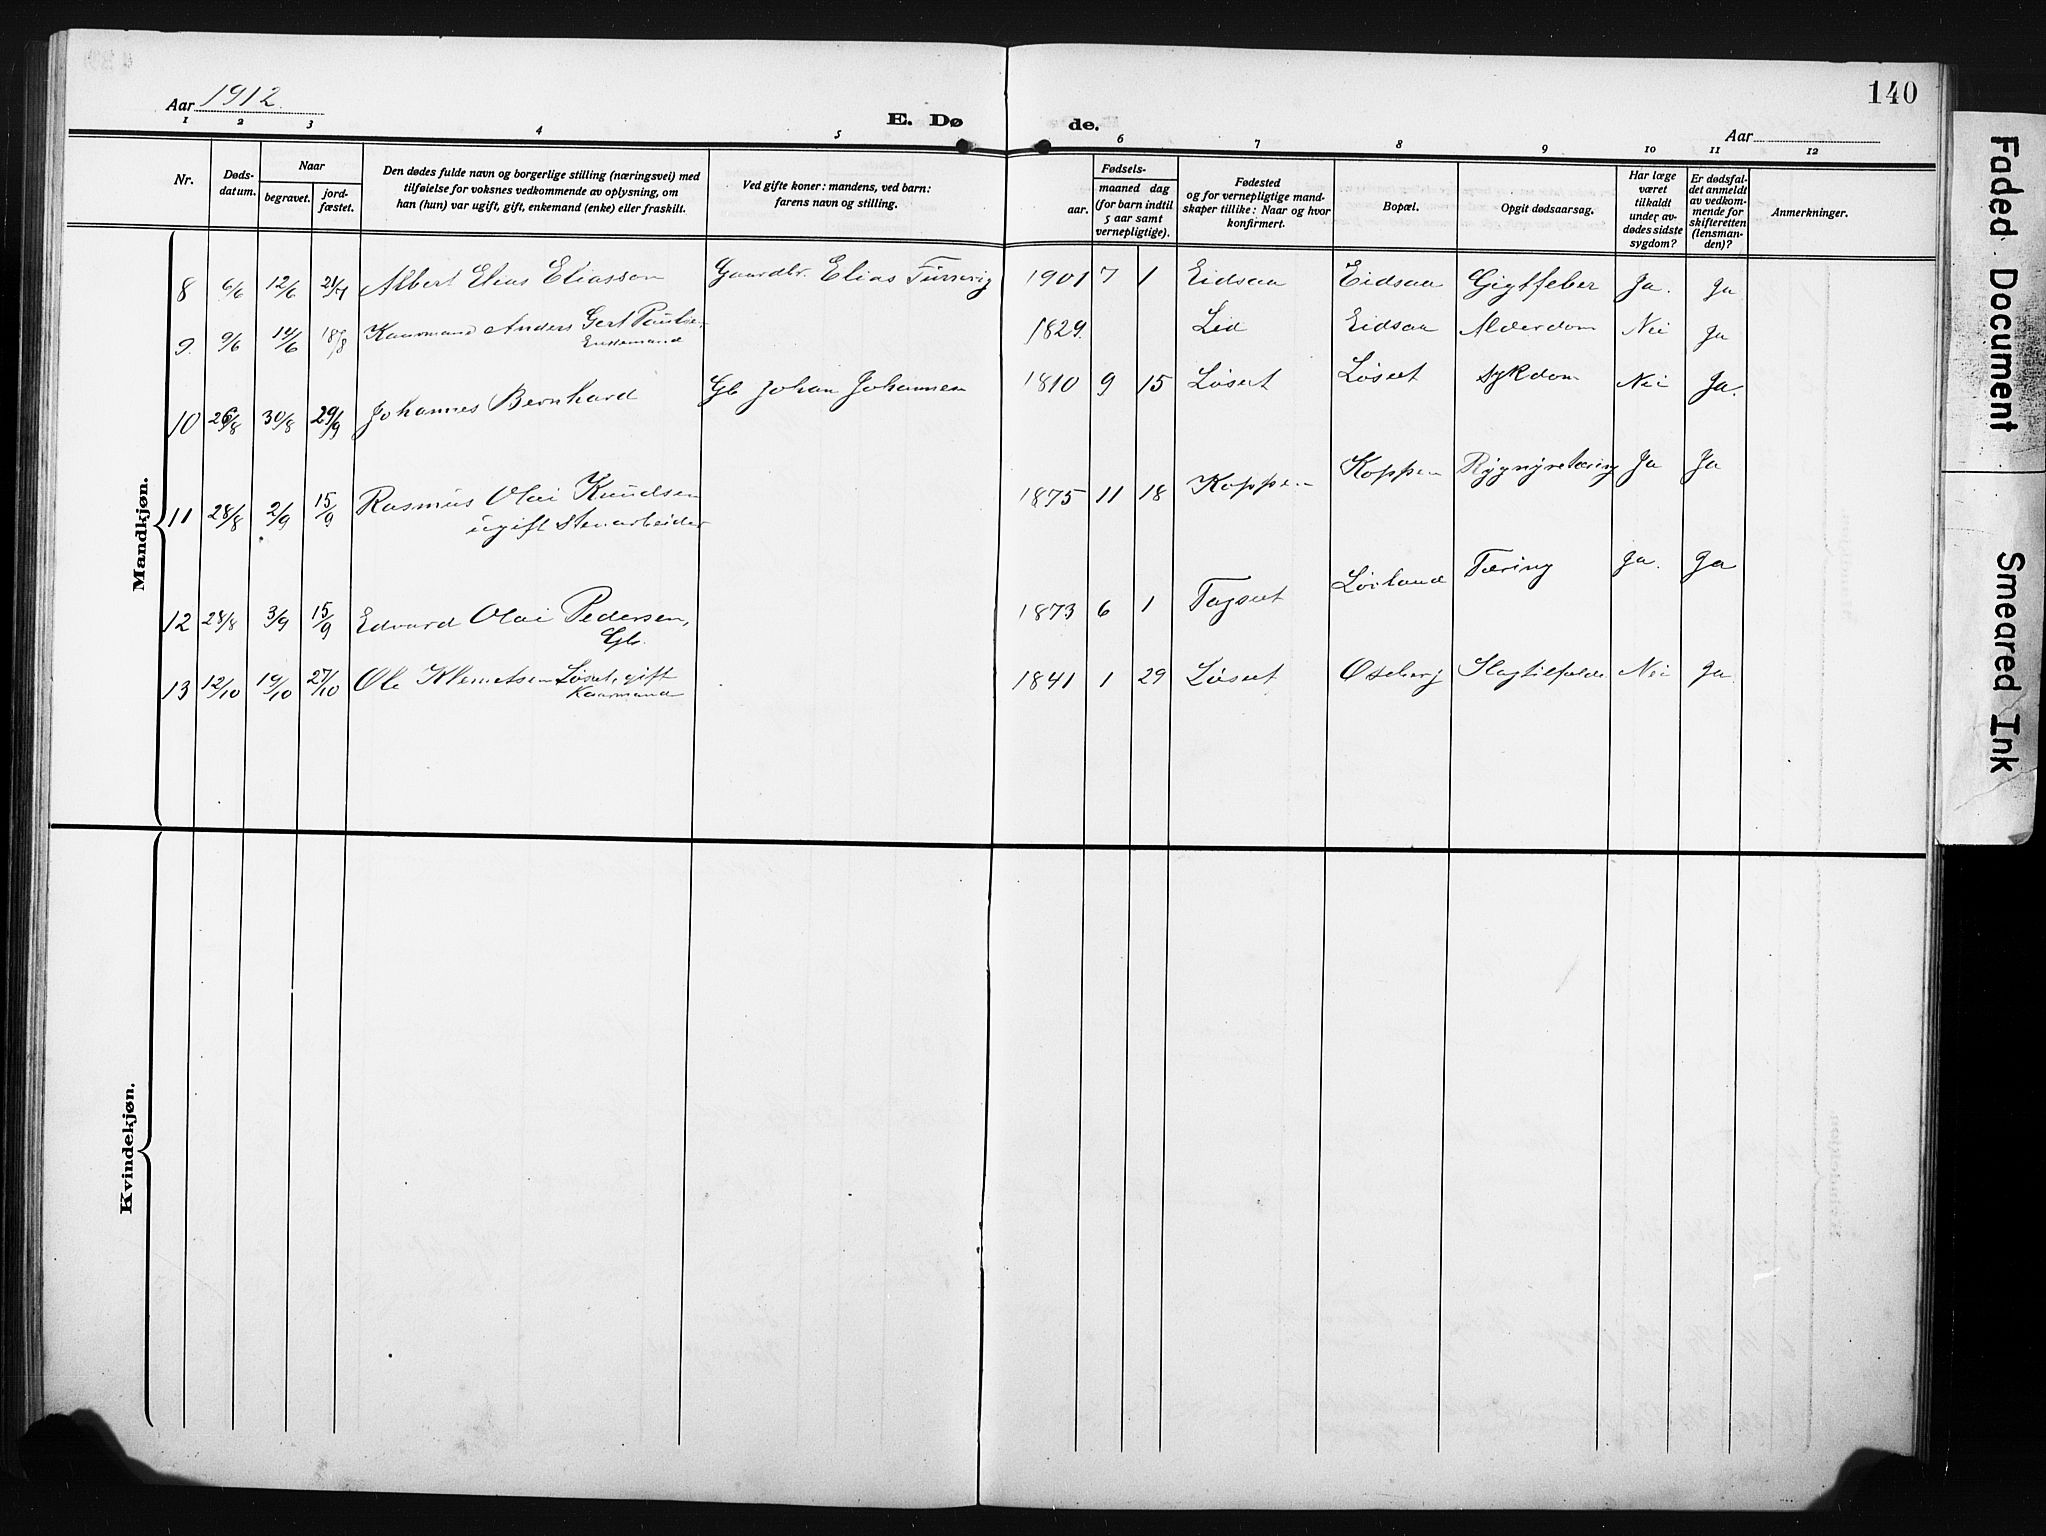 140
Aar 1912.
E. Døde.
Aar
1 2 3 4 5 6 7 8 9 10 11 12
Nr.
Døds-
datum.
Naar
begravet.
jord-
fæstet.
Den dødes fulde navn og borgerlige stilling (næringsvei) med
tilføielse for voksnes vedkommende av oplysning, om
han (hun) var ugift, gift, enkemand (enke) eller fraskilt.
Ved gifte koner: mandens, ved barn:
farens navn og stilling.
Fødsels-
aar.
maaned dag
(for barn indtil
5 aar samt
vernepligtige).
Fødested
og for vernepligtige mand-
skaper tillike: Naar og hvor
konfirmert.
Bopæl.
Opgit dødsaarsag.
Har læge
været
tilkaldt
under av-
dødes sidste
sygdom?
Er dødsfal-
det anmeldt
av vedkom-
mende for
skifteretten
(lensman-
den)?
Anmerkninger.
Mandkjøn.
8 6/6 12/6 Albert Elias Eliassen Gaardbr. Elias 1901 7 1 Eidsaa Eidsaa Gigtfeber Ja. Ja
9. 9/6 14/6 18/8 Kaarmand Anders Gert 1829. Lid Eidsaa Alderdom Nei Ja
Enkemand
10 26/8 30/8 29/9 Johannes Bernhard Gb Johan Johannesen 1810 9 15 Løset Løset Sykdom Nei Ja.
11 28/8 2/9 15/9 Rasmus Olai Knudsen 1875 11 18 Koppen Koppen Ja Ja
ugift Stenarbeider
12 28/8 3/9 15/9 Edvard Olai Pedersen, 1873 6 1 Tagset Tæring Ja. Ja
Gb.
13 12/10 19/10 27/10 Ole Klemetsen Løset, gift 1841 1 29 Løset Nei Ja
Kaarmand
Kvindekjøn.
Faded Document
Smeared Ink